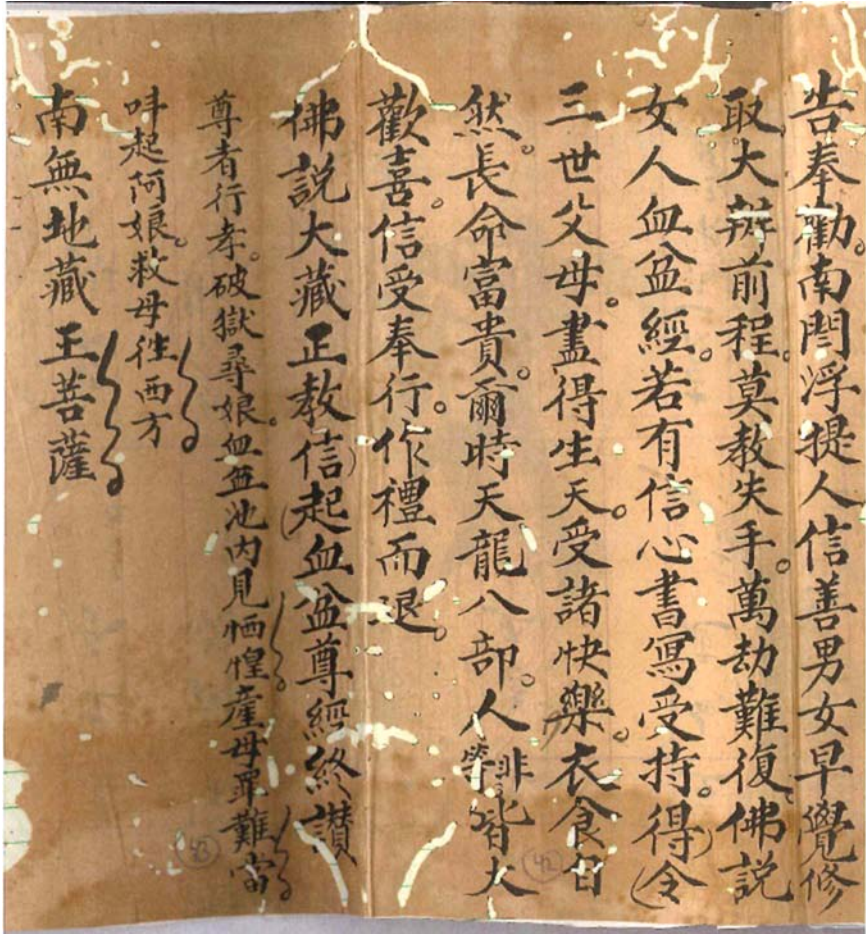 告奉勸。南閻浮提人信善男女早覺修
取大辦前程。莫教失手。萬劫難復。佛説
女人血盆經。若有信心書寫受持。得令
三世父母。盡得生天。受諸快樂。衣食自
然。長命富貴。爾時天龍八部。人非人等皆大
歡喜。信受奉行。作禮而退。
佛説大藏正教信起血盆尊經終讃
尊者行孝。破獄尋娘。血盆池内見恓惶。産母罪難當
呌起阿娘。救母徃西方
南無地藏王菩薩
42
43